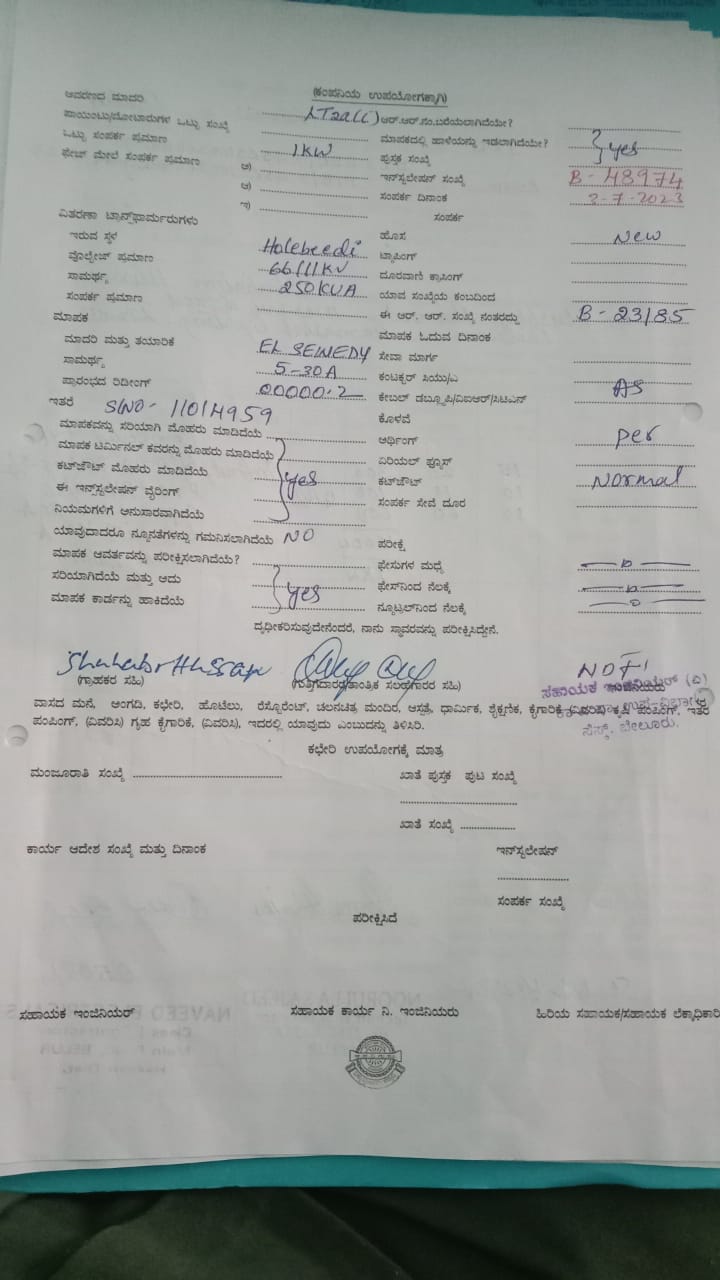 (ಕಂಪನಿಯ ಉಪಯೋಗಕ್ಕಾಗಿ)
ಆವರಣದ ಮಾದರಿ LT2a(
ಪಾಯಿಂಟು/ಮೋಟಾರುಗಳ ಒಟ್ಟು ಸಂಖ್ಯೆ ಆರ್.ಆರ್.ನಂ.ಬರೆಯಲಾಗಿದೆಯೇ?
ಒಟ್ಟು ಸಂಪರ್ಕ ಪ್ರಮಾಣ 1KW ಮಾಪಕದಲ್ಲಿ ಹಾಳೆಯನ್ನು ಇಡಲಾಗಿದೆಯೇ? yes
ಫೇಟ್ ಮೇಲೆ ಸಂಪರ್ಕ ಪ್ರಮಾಣ ಅ) ಪುಸ್ತಕ ಸಂಖ್ಯೆ
ಆ) ಇನ್‌ಸ್ಟಲೇಷನ್ ಸಂಖ್ಯೆ B-48974
ಇ) ಸಂಪರ್ಕ ದಿನಾಂಕ 3-7-2023
ವಿತರಣಾ ಟ್ರಾನ್ಸ್‌ಫಾರ್ಮರುಗಳು ಸಂಪರ್ಕ
ಇರುವ ಸ್ಥಳ Holebeedi ಹೊಸ New
ವೊಲ್ಟೇಜ್ ಪ್ರಮಾಣ 66/11KV ಟ್ಯಾಪಿಂಗ್
ಸಾಮರ್ಥ್ಯ 250KVA ದೂರವಾಣಿ ಕ್ರಾಸಿಂಗ್
ಸಂಪರ್ಕ ಪ್ರಮಾಣ ಯಾವ ಸಂಖ್ಯೆಯ ಕಂಬದಿಂದ
ಮಾಪಕ ಈ ಆರ್. ಆರ್. ಸಂಖ್ಯೆ ನಂತರದ್ದು B-23185
ಮಾದರಿ ಮತ್ತು ತಯಾರಿಕೆ EL SEWEDY ಮಾಪಕ ಓದುವ ದಿನಾಂಕ
ಸಾಮರ್ಥ್ಯ 5-30A ಸೇವಾ ಮಾರ್ಗ
ಪ್ರಾರಂಭದ ರಿಡೀಂಗ್ 00000.2 ಕಂಟಕ್ಟರ್ ಸಿಯು/ಎ
ಇತರೆ S/NO- 11014959 ಕೇಬಲ್ ಡಬ್ಲೂಪಿ/ವಿಐಆರ್/ಸಿಟಿಎಸ್ AS
ಮಾಪಕವನ್ನು ಸರಿಯಾಗಿ ಮೊಹರು ಮಾಡಿದೆಯೆ ಕೊಳವೆ
ಮಾಪಕ ಟರ್ಮಿನಲ್ ಕವರನ್ನು ಮೊಹರು ಮಾಡಿದೆಯೆ ಆರ್ಥಿಂಗ್ per
ಕಟ್‌ಔಟ್ ಮೊಹರು ಮಾಡಿದೆಯೆ yes ಏರಿಯಲ್ ಫ್ಯೂಸ್
ಈ ಇನ್‌ಸ್ಟಲೇಷನ್ ವೈರಿಂಗ್ ಕಟ್‌ಔಟ್ Normal
ನಿಯಮಗಳಿಗೆ ಅನುಸಾರವಾಗಿದೆಯೆ ಸಂಪರ್ಕ ಸೇವೆ ದೂರ
ಯಾವುದಾದರೂ ನ್ಯೂನತೆಗಳನ್ನು ಗಮನಿಸಲಾಗಿದೆಯೆ NO ಪರೀಕ್ಷೆ
ಮಾಪಕ ಆವರ್ತವನ್ನು ಪರೀಕ್ಷಿಸಲಾಗಿದೆಯೆ? ಫೇಸುಗಳ ಮಧ್ಯೆ
ಸರಿಯಾಗಿದೆಯೆ ಮತ್ತು ಅದು yes ಫೇಸ್‌ನಿಂದ ನೆಲಕ್ಕೆ
ಮಾಪಕ ಕಾರ್ಡನ್ನು ಹಾಕಿದೆಯೆ ನ್ಯೂಟ್ರಲ್‌ನಿಂದ ನೆಲಕ್ಕೆ
ದೃಢೀಕರಿಸುವುದೇನೆಂದರೆ, ನಾನು ಸ್ಥಾವರವನ್ನು ಪರೀಕ್ಷಿಸಿದ್ದೇನೆ.
(ಗ್ರಾಹಕರ ಸಹಿ) (ಗುತ್ತಿಗೆದಾರರ/ತಾಂತ್ರಿಕ ಸಲಹೆಗಾರರ ಸಹಿ) ಸಹಾಯಕ ಇಂಜಿನಿಯರ್ (ವಿ)
ವಾಸದ ಮನೆ, ಅಂಗಡಿ, ಕಛೇರಿ, ಹೊಟೆಲು, ರೆಸ್ಟೋರೆಂಟ್, ಚಲನಚಿತ್ರ ಮಂದಿರ, ಆಸ್ಪತ್ರೆ, ಧಾರ್ಮಿಕ, ಶೈಕ್ಷಣಿಕ, ಕೈಗಾರಿಕೆ (ವಿವರಿಸಿ) ಕೃಷಿ ಪಂಪಿಂಗ್, ಇತರೆ
ಪಂಪಿಂಗ್, (ವಿವರಿಸಿ) ಗೃಹ ಕೈಗಾರಿಕೆ, (ವಿವರಿಸಿ), ಇದರಲ್ಲಿ ಯಾವುದು ಎಂಬುದನ್ನು ತಿಳಿಸಿರಿ. ಸೆಸ್ಕ್, ಬೇಲೂರು.
ಕಛೇರಿ ಉಪಯೋಗಕ್ಕೆ ಮಾತ್ರ
ಮಂಜೂರಾತಿ ಸಂಖ್ಯೆ ಖಾತೆ ಪುಸ್ತಕ ಪುಟ ಸಂಖ್ಯೆ
ಖಾತೆ ಸಂಖ್ಯೆ
ಕಾರ್ಯ ಆದೇಶ ಸಂಖ್ಯೆ ಮತ್ತು ದಿನಾಂಕ ಇನ್‌ಸ್ಟಲೇಷನ್
ಸಂಪರ್ಕ ಸಂಖ್ಯೆ
ಪರೀಕ್ಷಿಸಿದೆ
ಸಹಾಯಕ ಇಂಜಿನಿಯರ್ ಸಹಾಯಕ ಕಾರ್ಯ ನಿ. ಇಂಜಿನಿಯರು ಹಿರಿಯ ಸಹಾಯಕ/ಸಹಾಯಕ ಲೆಕ್ಕಾಧಿಕಾರಿ